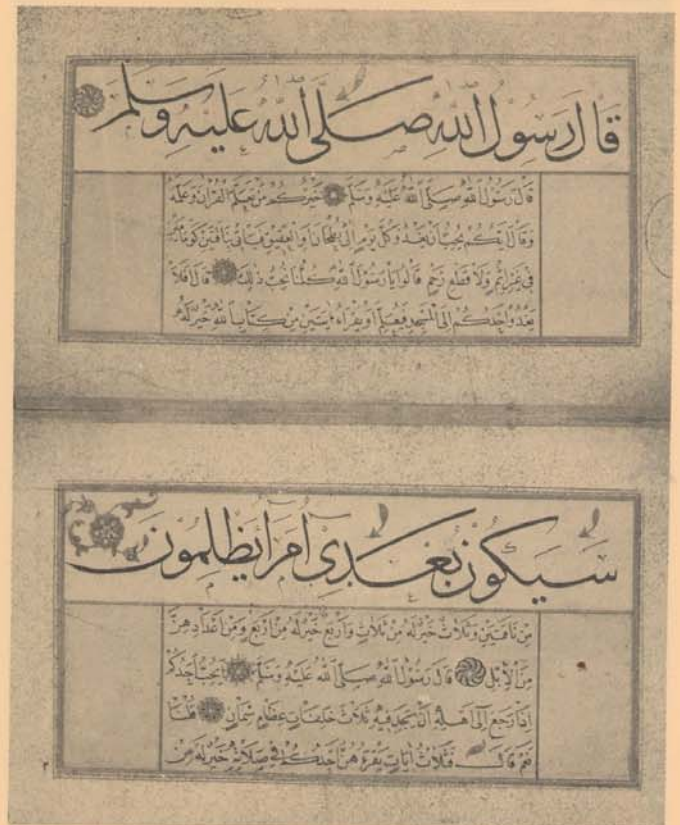 قَالَ رَسُولُ اللهِ صَلَّى اللهُ عَلَيْهِ وَسَلَّمَ
قَالَ رَسُولُ اللهِ صَلَّى اللهُ عَلَيْهِ وَسَلَّمَ خَيْرُكُمْ مَنْ تَعَلَّمَ الْقُرْآنَ وَعَلَّمَهُ
وَقَالَ أَيُّكُمْ يُحِبُّ أَنْ يَغْدُوَ كُلَّ يَوْمٍ إِلَى بُطْحَانَ أَوِ الْعَقِيقِ فَيَأْتِيَ بِنَاقَتَيْنِ كَوْمَاوَيْنِ
فِي غَيْرِ إِثْمٍ وَلَا قَطْعِ رَحِمٍ قَالُوا يَا رَسُولَ اللهِ كُلُّنَا نُحِبُّ ذٰلِكَ قَالَ أَفَلَا
يَغْدُو أَحَدُكُمْ إِلَى الْمَسْجِدِ فَيُعَلِّمَ أَوْ يَقْرَأَ آيَتَيْنِ مِنْ كِتَابِ اللهِ خَيْرٌ لَهُ
سَيَكُونُ بَعْدِي أُمَرَاءُ يَظْلِمُونَ
مِنْ نَاقَتَيْنِ وَثَلَاثٌ خَيْرٌ لَهُ مِنْ ثَلَاثٍ وَأَرْبَعٌ خَيْرٌ لَهُ مِنْ أَرْبَعٍ وَمِنْ أَعْدَادِهِنَّ
مِنَ الْإِبِلِ قَالَ رَسُولُ اللهِ صَلَّى اللهُ عَلَيْهِ وَسَلَّمَ أَيُحِبُّ أَحَدُكُمْ
إِذَا رَجَعَ إِلَى أَهْلِهِ أَنْ يَجِدَ فِيهِ ثَلَاثَ خَلِفَاتٍ عِظَامٍ سِمَانٍ قُلْنَا
نَعَمْ قَالَ فَثَلَاثُ آيَاتٍ يَقْرَؤُهُنَّ أَحَدُكُمْ فِي صَلَاتِهِ خَيْرٌ لَهُ مِنْ
٢